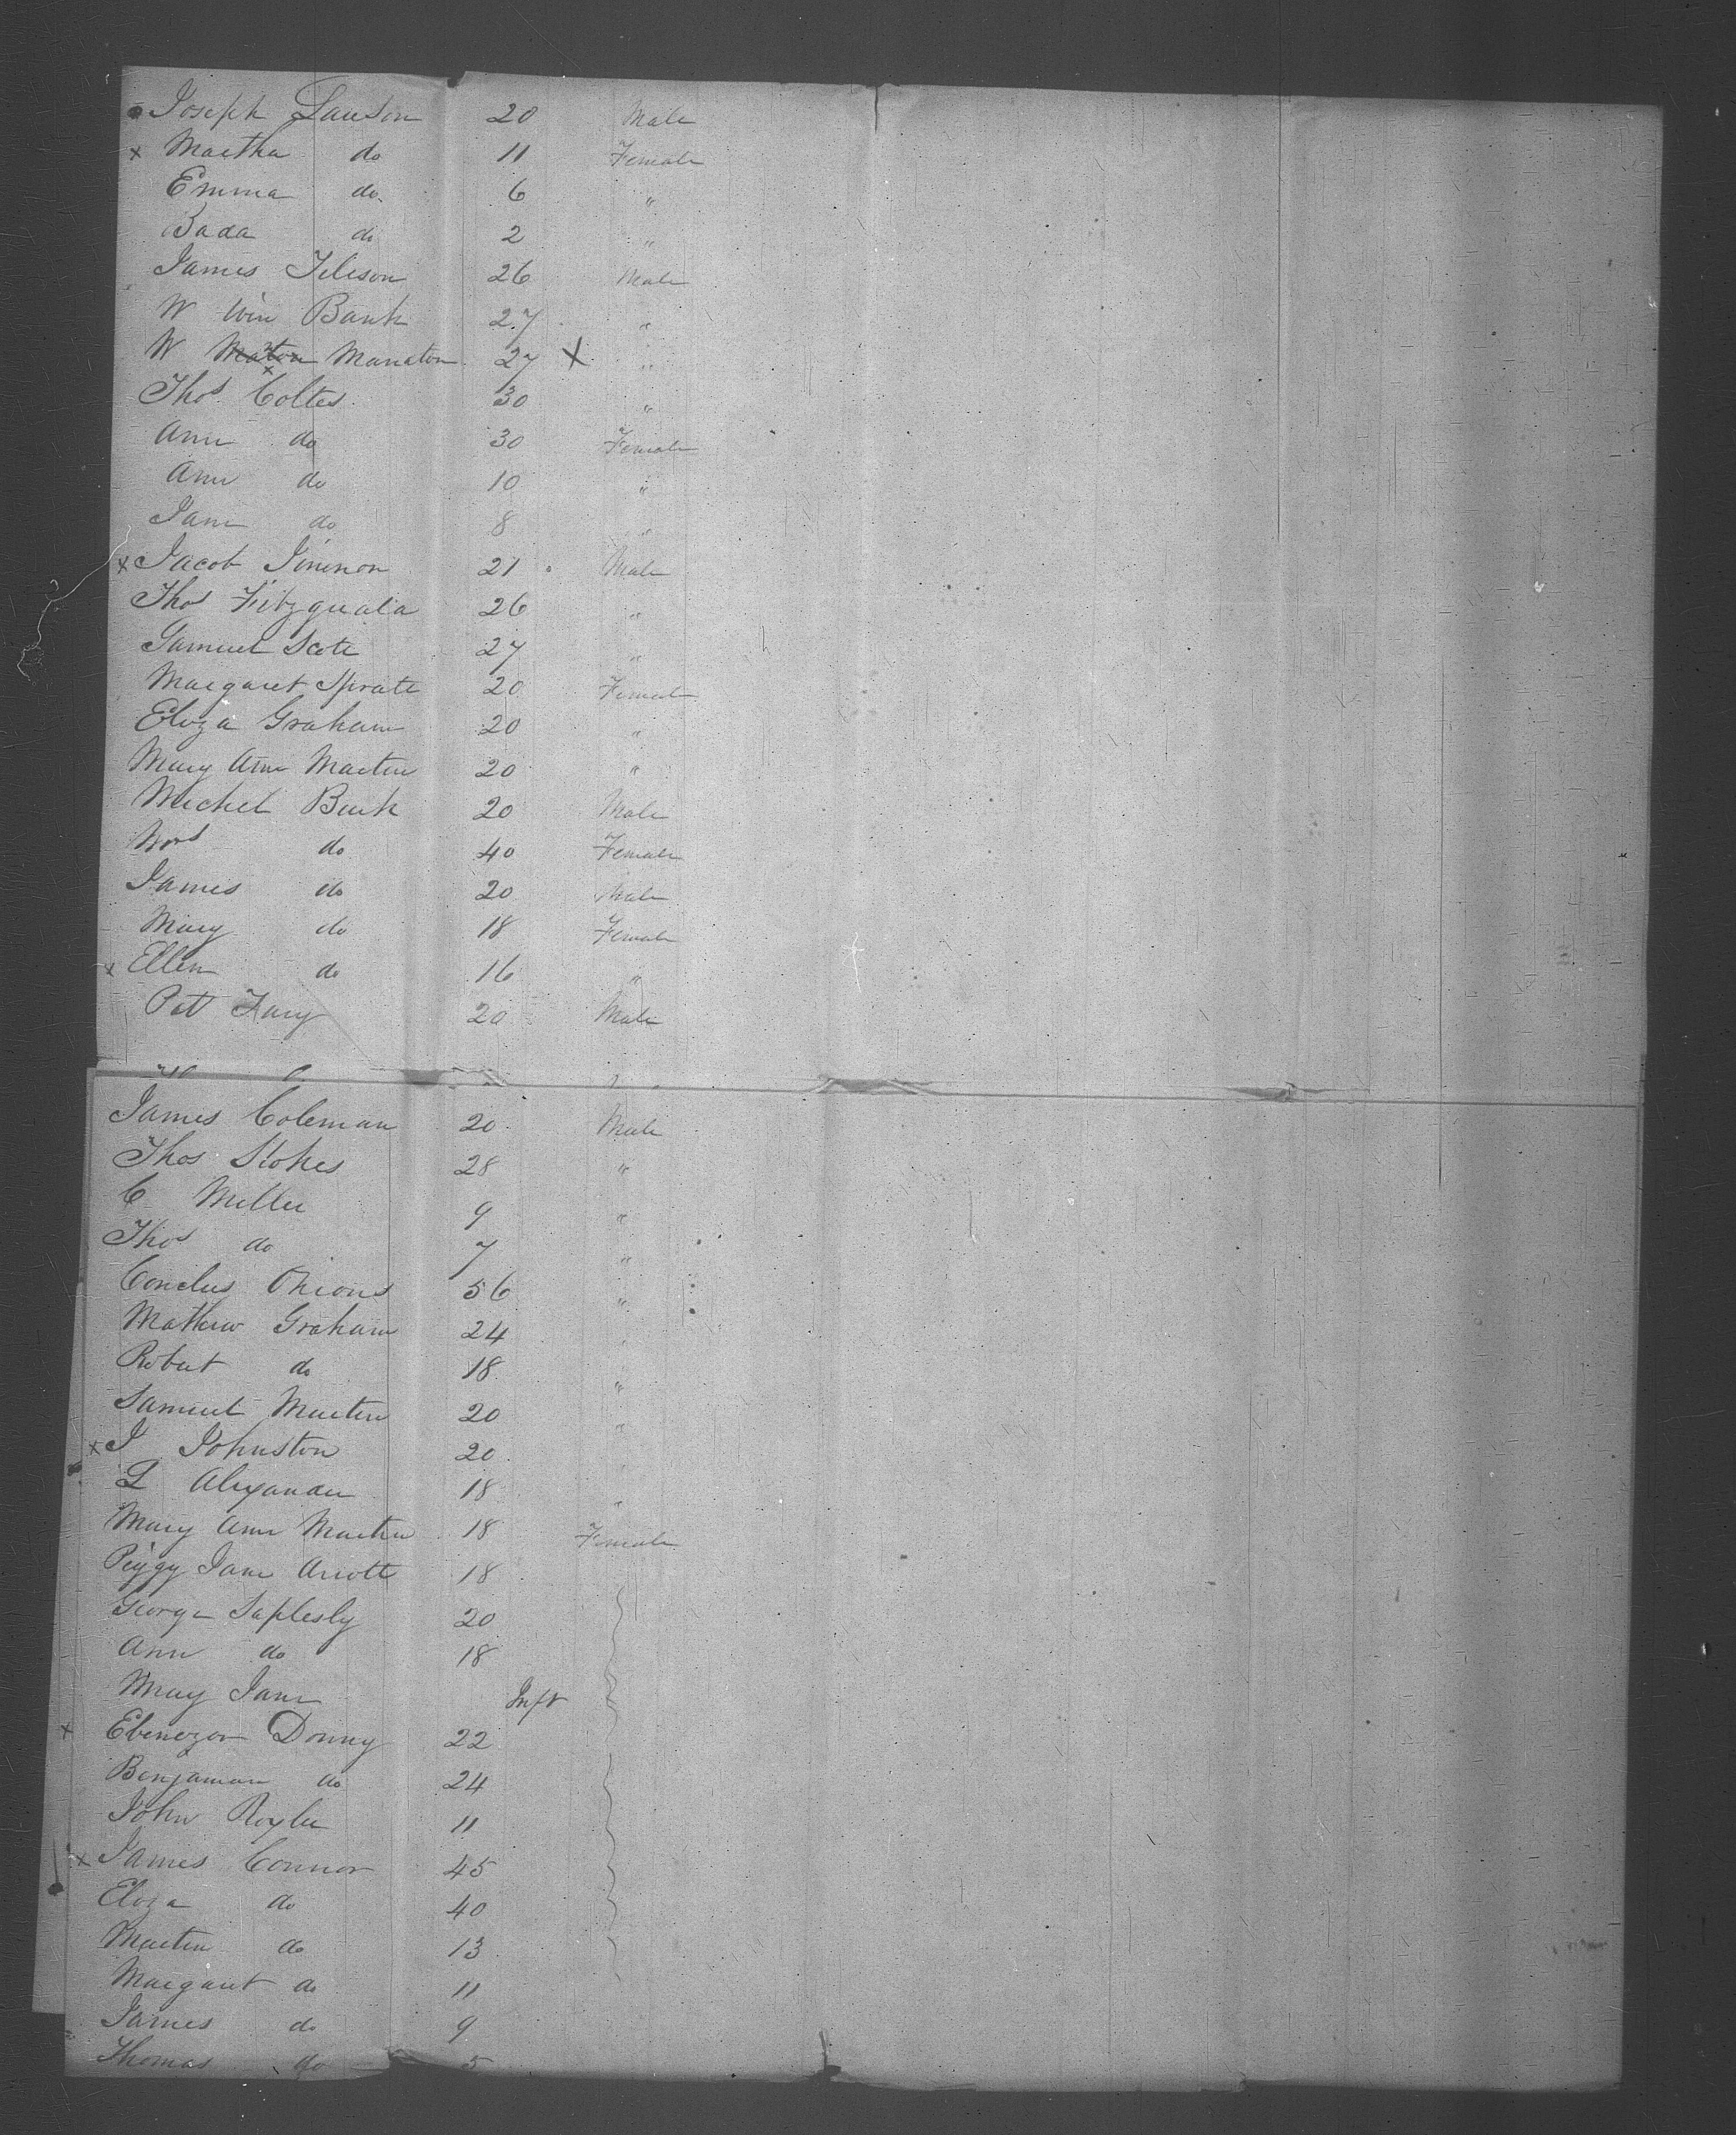 Joseph Lawson 20 Male
x Martha do 11 Female
Emma do 6 "
Bada do 2 "
James Jelison 26 Male
W Win Bank 27 "
W Manaton 27 X "
Thos Coltes 30 "
Ann do 30 Female
Ann do 10 "
Jane do 8 "
x Jacob 21 Male
Thos 26 "
Samuel Scott 27 "
Margaret Spratt 20 Female
Eliza Graham 20 "
Mary Ann Martin 20 "
Michel Burk 20 Male
do 40 Female
James do 20 Male
Mary do 18 Female
x Ellen do 16 "
Pat 20 Male
James Coleman 20 Male
Thos Stokes 28 "
C Miller 9 "
Thos do 7 "
Onions 56 "
Mathew Graham 24 "
Robert do 18 "
Samuel Martin 20 "
x J Johnston 20 "
Alexander 18 "
Mary Ann Martin 18 Female
Peggy Jane Arrott 18
George Saplesly 20
Ann do 18
Mary Jane Inft
x Ebenezor Donny 22
Benjaman do 24
John Royle 11
x James Connor 45
Eliza do 40
Martin do 13
Margaret do 11
James do 9
Thomas do 5